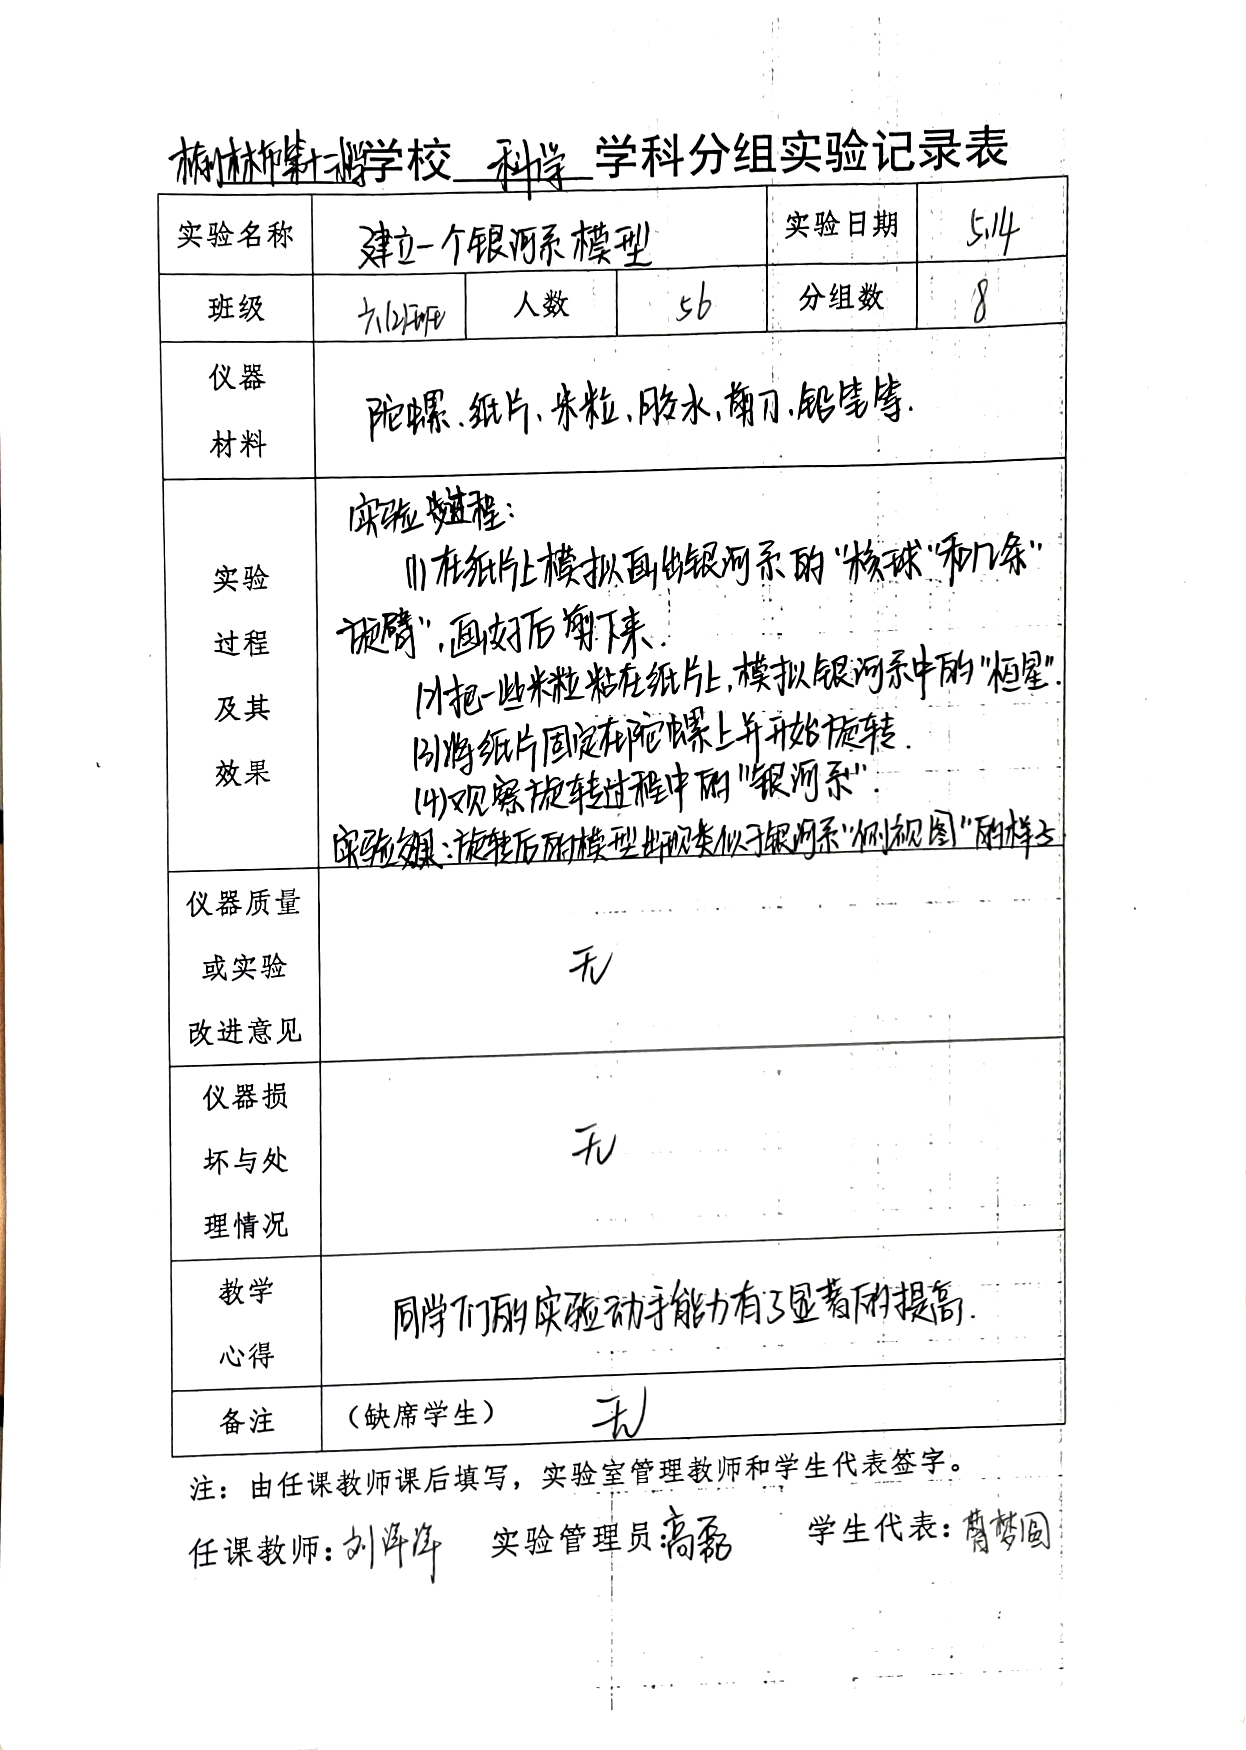 榆林市第十二小学学校 科学 学科分组实验记录表
实验名称 建立一个银河系模型 实验日期 5.14
班级 六(2)班 人数 56 分组数 8
仪器
材料
陀螺、纸片、米粒、胶水、剪刀、铅笔等.
实验
过程
及其
效果
实验过程:
(1)在纸片上模拟画出银河系的"核球"和几条"
旋臂",画好后剪下来.
(2)把一些米粒粘在纸片上,模拟银河系中的"恒星".
(3)将纸片固定在陀螺上并开始旋转.
(4)观察旋转过程中的"银河系".
实验效果:旋转后的模型出现类似于银河系"侧视图"的样子
仪器质量
或实验
改进意见
无
仪器损
坏与处
理情况
无
教学
心得
同学们的实验动手能力有了显著的提高.
备注 (缺席学生) 无
注:由任课教师课后填写,实验室管理教师和学生代表签字。
任课教师:刘洋洋 实验管理员:高磊 学生代表:梦圆